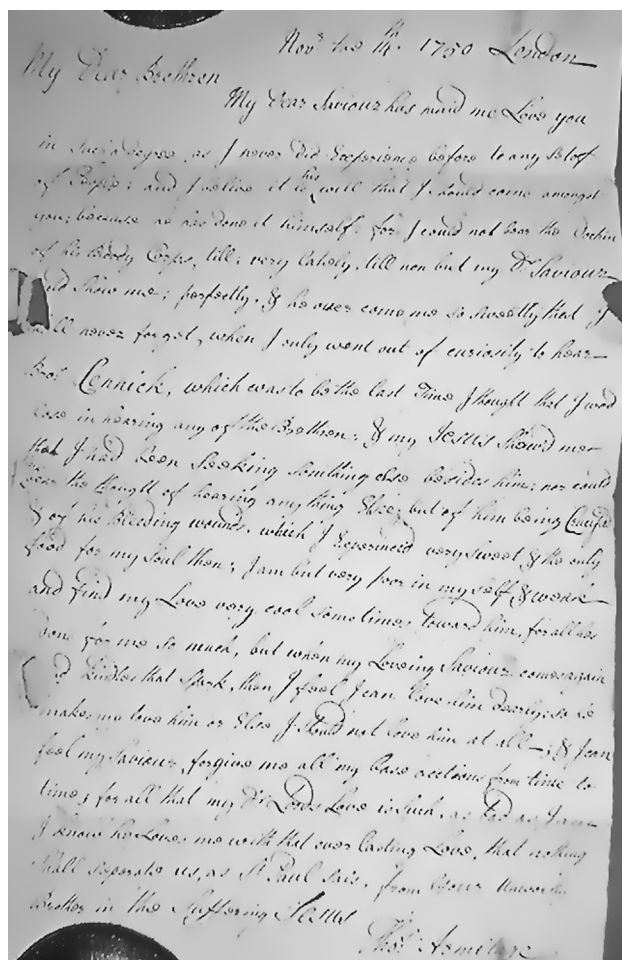 Novr the 14th 1750 London
My Dear Brethren
My Dear Saviour has maid me Love you
in Such a degree, as I never did Experience before to any Set of
of People; and I belive it is his will that I should come amongst
you; because he has done it himself. for I could not bear the
of his Body Corps, till; very lately, till non but my Dr Saviour
and show me; perfectly, & he over came me so sweetly that I
shall never forget, when I only went out of curiosity to hear
Bror Cennick, which was to be the last Time I thought that I wod
care in hearing any of the Brethren; & my Jesus Showd me
that I had been Seeking something else besides him; nor could
bear the thought of hearing any thing Else; but of him being Crucifd
& of his Bleeding wounds, which I Experienced very sweet & the only
food for my Soul then; I am but very poor in my self & weak
and find my Love very cool sometimes toward him, for all hes
done for me so much, but when my Loveing Saviour comes again
and kindles that Spark, then I feel I can love him dearly; so he
makes me love him or Else I should not love him at all; & I can
feel my Saviour, forgive me all my base actions from time to
time; for all that my Dr Lords Love is Such, as bad as I am
I know he Loves me with that ever lasting Love, that nothing
shall seperate us, as St Paul sais, from Your Unworthy
Brother in the Suffering Jesus
Thos Armitage